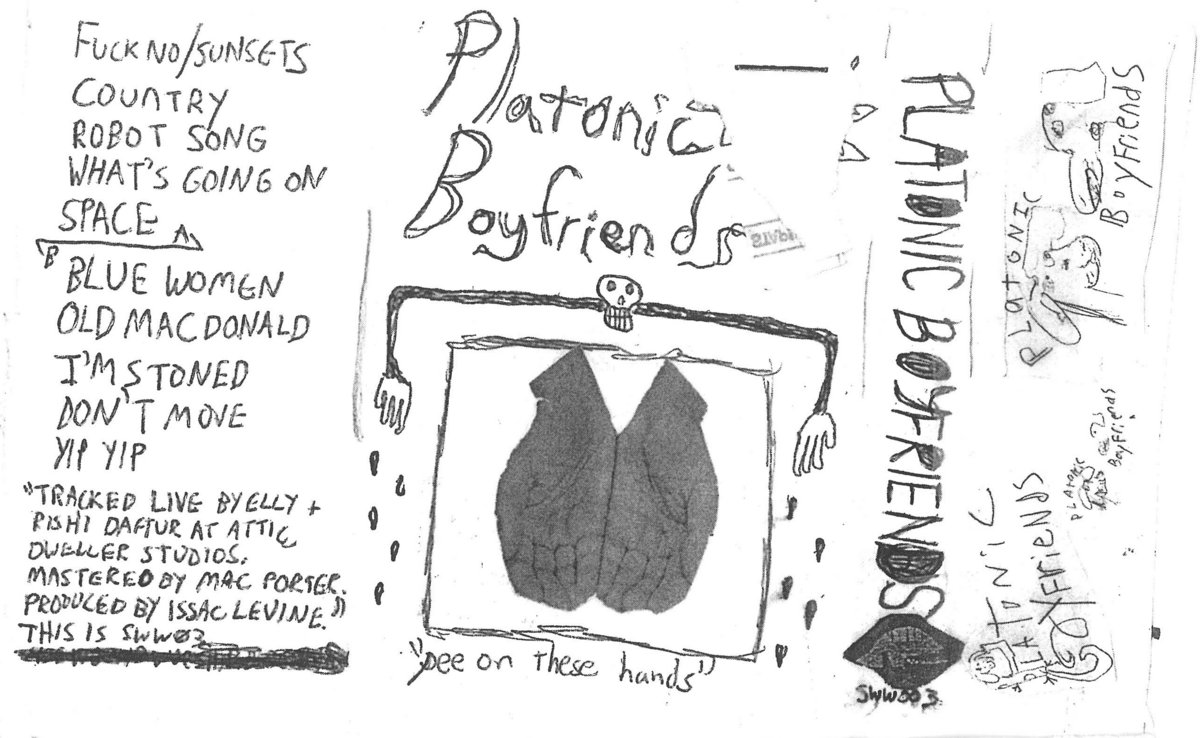 FUCK NO/SUNSETS
COUNTRY
ROBOT SONG
WHAT'S GOING ON
SPACE A
B BLUE WOMEN
OLD MACDONALD
I'M STONED
DON'T MOVE
YIP YIP
"TRACKED LIVE BY ELLY +
RISHI DAFTUR AT ATTIC
DWELLER STUDIOS.
MASTERED BY MAC PORTER.
PRODUCED BY ISSAC LEVINE."
THIS IS SWW03
Platonic
Boyfriends
"pee on these hands"
PLATONIC BOYFRIENDS
SWW003
PLATONIC
BOYFRIENDS
PLATONIC
BOYFRIENDS
PLATONIC
YFRIENDS